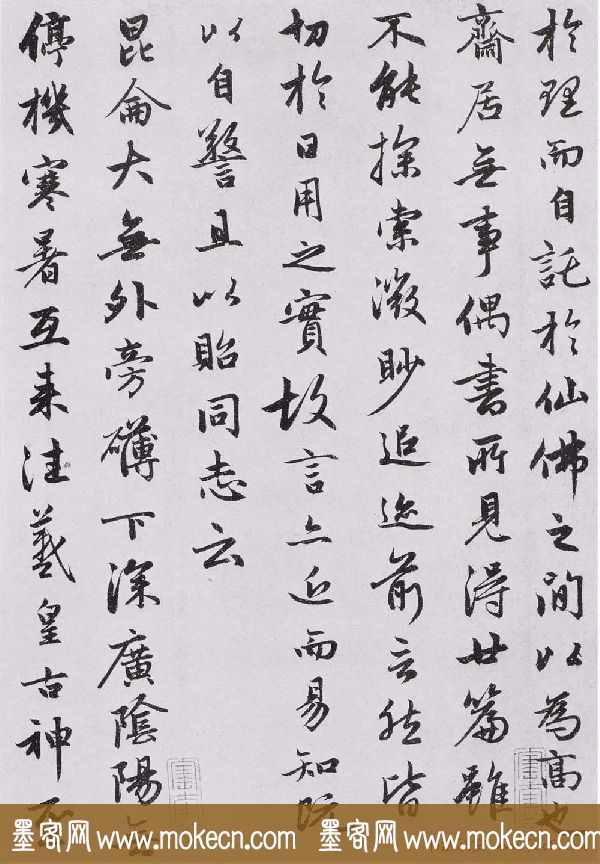 於理而自託於仙佛之間以為高也
齋居無事偶書所見得廿篇雖
不能探索微眇追迹前言然皆
切於日用之實故言亦近而易知既
以自警且以貽同志云
昆侖大無外旁礴下深廣陰陽無
停機寒暑互来往羲皇古神
墨客网 www.mokecn.com 墨客网 www.mokecn.com